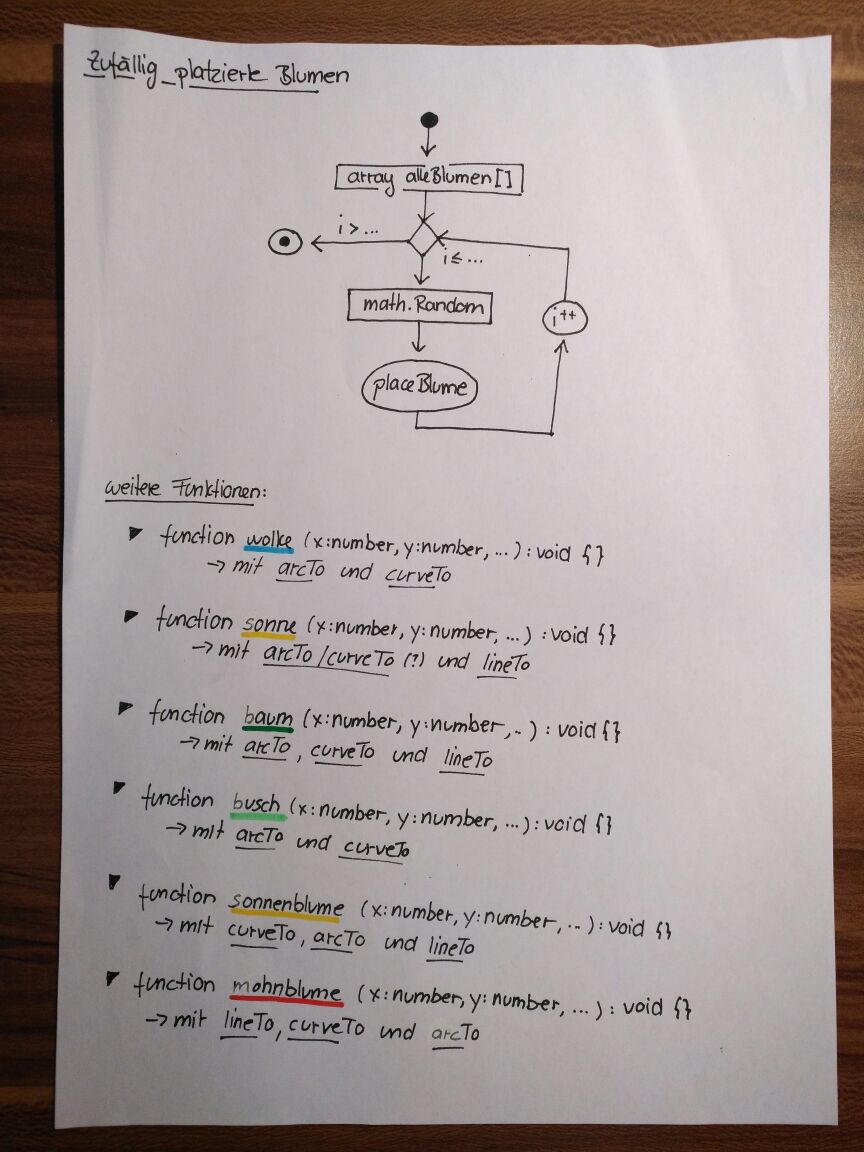 Zufällig platzierte Blumen
array alleBlumen []
i > ...
i ≤ ...
math.Random
i++
placeBlume
weitere Funktionen:
function wolke (x:number, y:number, ...) : void {}
→ mit arcTo und curveTo
function sonne (x:number, y:number, ...) : void {}
→ mit arcTo/curveTo (?) und lineTo
function baum (x:number, y:number, ..) : void {}
→ mit arcTo, curveTo und lineTo
function busch (x:number, y:number, ...) : void {}
→ mit arcTo und curveTo
function sonnenblume (x:number, y:number, ...) : void {}
→ mit curveTo, arcTo und lineTo
function mohnblume (x:number, y:number, ...) : void {}
→ mit lineTo, curveTo und arcTo